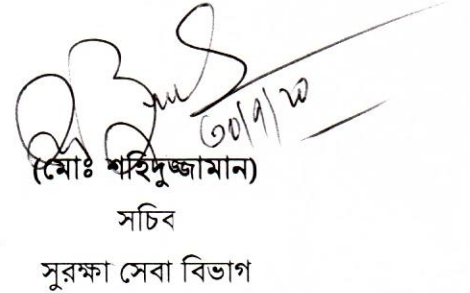 ৩০/৭/২০
(মোঃ শহিদুজ্জামান)
সচিব
সুরক্ষা সেবা বিভাগ